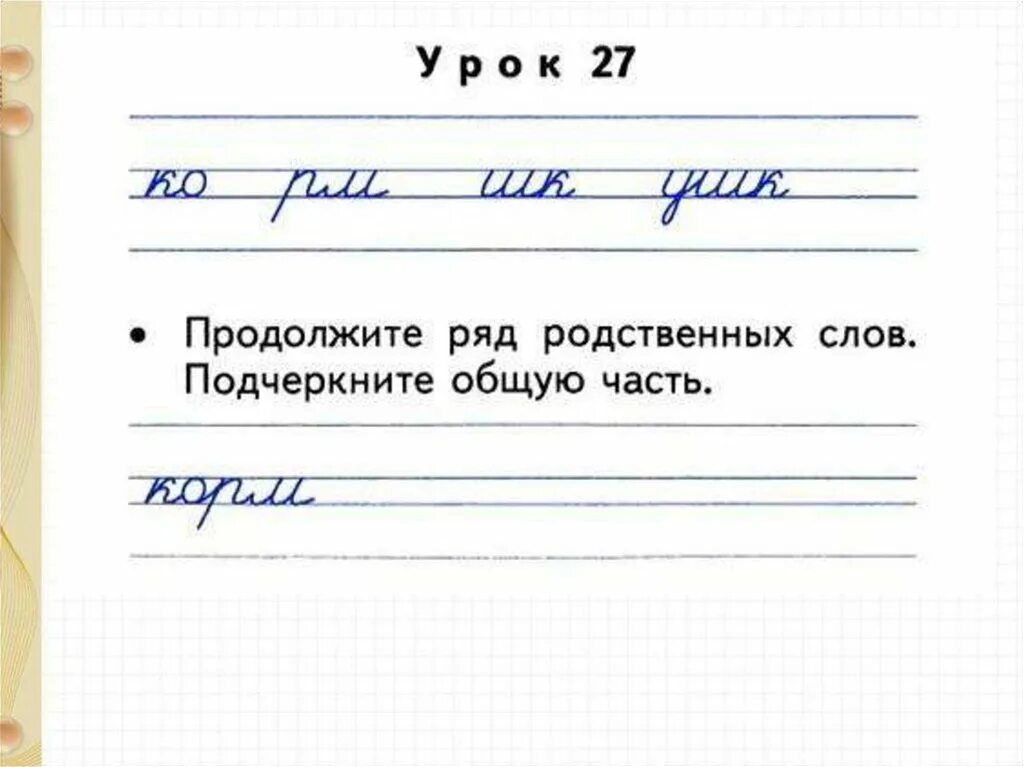 Урок 27
ко рм шк ушк
• Продолжите ряд родственных слов.
Подчеркните общую часть.
корм